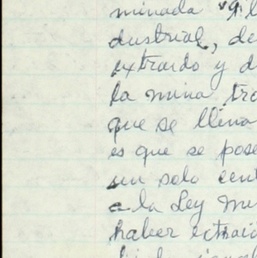 minada
dustrial, de
extraido y d
la mina, tra
que se llena
es que se pose
un solo cent
a la Ley Mi
haber extrai